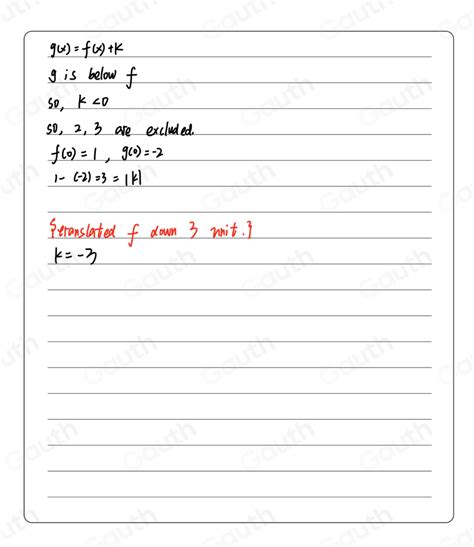 g(x) = f(x) + k
g is below f
so, k < 0
so, 2, 3 are excluded.
f(0) = 1 , g(0) = -2
1 - (-2) = 3 = |k|
{translated f down 3 unit.}
k = -3